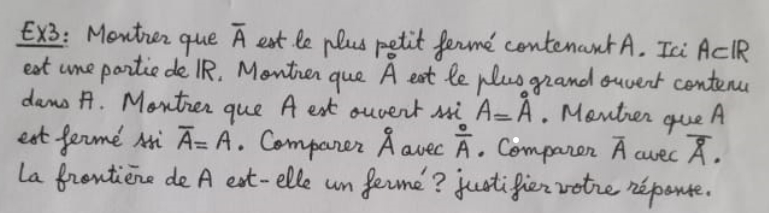 Ex3: Montrer que A̅ est le plus petit fermé contenant A. Ici A⊂ℝ
est une partie de ℝ. Montrer que Å est le plus grand ouvert contenu
dans A. Montrer que A est ouvert ssi A=Å. Montrer que A
est fermé ssi A̅=A. Comparer Å avec A̅̊. Comparer A̅ avec Å̅.
La frontière de A est-elle un fermé? justifier votre réponse.